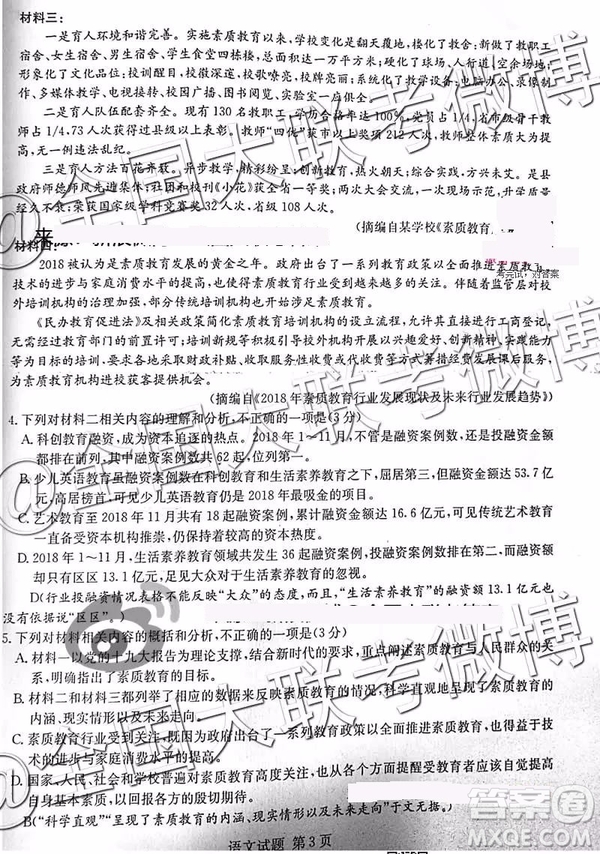 材料三：
一是育人环境和谐完善。实施素质教育以来，学校变化是翻天覆地，楼化了教学：新做了教职工
宿舍、女生宿舍、男生宿舍、学生食堂四栋楼，总面积达一万平方米；硬化了球场、人行道、空余场地；
形象化了文化品位：校训醒目，校徽深邃，校歌嘹亮，校标引人；系统化了教学设备：电脑办公、录像制
作、多媒体教学、电视接转、校园广播、图书阅览、实验室一应俱全。
二是育人队伍配套齐全。现有 130 名教职工，学历合格率达 100%，党员占 1/4，省市级骨干教
师占 1/4，73 人次获得过县级以上表彰。教师“四优”获市以上奖项 212 人次，教师整体素质大为提
高，无一例违法乱纪。
三是育人方法百花齐放。异步教学，精彩纷呈；创新教育，热火朝天；综合实践，方兴未艾。是县
政府师德师风先进集体；社团和校刊《小花》获全省一等奖；两次大会交流，一次现场会，影响质量
经久不衰；荣获国家级学科竞赛奖 32 人次，省级 108 人次。
（摘编自某学校《素质教育
来
材料四
考完试，对答案
2018 被认为是素质教育发展的黄金之年。政府出台了一系列教育政策以全面推进素质教育，
技术的进步与家庭消费水平的提高，也使得素质教育行业受到越来越多的关注。伴随着监管层对校
外培训机构的治理行动，部分传统培训机构也开启了自身的转型。
《民办教育促进法》及相关政策简化素质教育培训机构的设立流程，允许其直接进行工商登记，
无需经过教育部门的前置许可；招标新规等积极引导校外机构开展办学，创新精神、实践能力的培训
收取服务性收费或代收费等方式筹措经费发展课后服务，
为素质教育机构进校获客提供机会。
（摘编自《2018 年素质教育行业发展现状及未来行业发展趋势》）
4. 下列对材料二相关内容的理解和分析，不正确的一项是（3 分）
A. 科创教育融资，成为资本追逐的热点。2018 年 1～11 月，不管是融资案例数，还是投融资金额
都排在前列，其中融资案例数共 62 起，位列第一。
B. 少儿英语教育虽融资案例数在科创教育和生活素养教育之下，屈居第三，但融资金额达 53.7 亿
元，高居榜首，可见少儿英语教育仍是 2018 年最吸金的项目。
C. 艺术教育至 2018 年 11 月共有 18 起融资案例，累计融资金额达 16.6 亿元，可见传统艺术教育
一直备受资本机构推崇，仍保持着较高的资本热度。
D. 2018 年 1～11 月，生活素养教育领域共发生 36 起融资案例，投融资案例数排在第二，而融资额
却只有区区 13.1 亿元，足见大众对于生活素养教育的忽视。
D（行业投融资情况表格不能反映“大众”的态度，“生活素养教育”的融资额 13.1 亿元也
没有依据说“区区”。）
5. 下列对材料相关内容的概括和分析，不正确的一项是（3 分）
A. 材料一以党的十九大报告为理论支撑，结合新时代的要求，重点阐述素质教育与人民群众的关
系，明确指出了素质教育的目标。
B. 材料二和材料三都列举了相应的数据来反映目前的素质教育现状，科学直观地呈现了素质教育的
内涵、现实情形以及未来走向。
C. 素质教育行业受到关注，既因为政府出台了一系列教育政策以全面推进素质教育，也得益于技
术的进步与家庭消费水平的提高。
D. 国家、人民、社会和学校普遍对素质教育高度关注，也从各个方面提醒受教育者应该自觉提高
自身基本素质，以回报各方的殷切期待。
B（“科学直观”“呈现了素质教育的内涵、现实情形以及未来走向”于文无据。）
语文试题 第 3 页
@全国大联考微博
@全国大联考微博
@全国大联考微博
答案圈